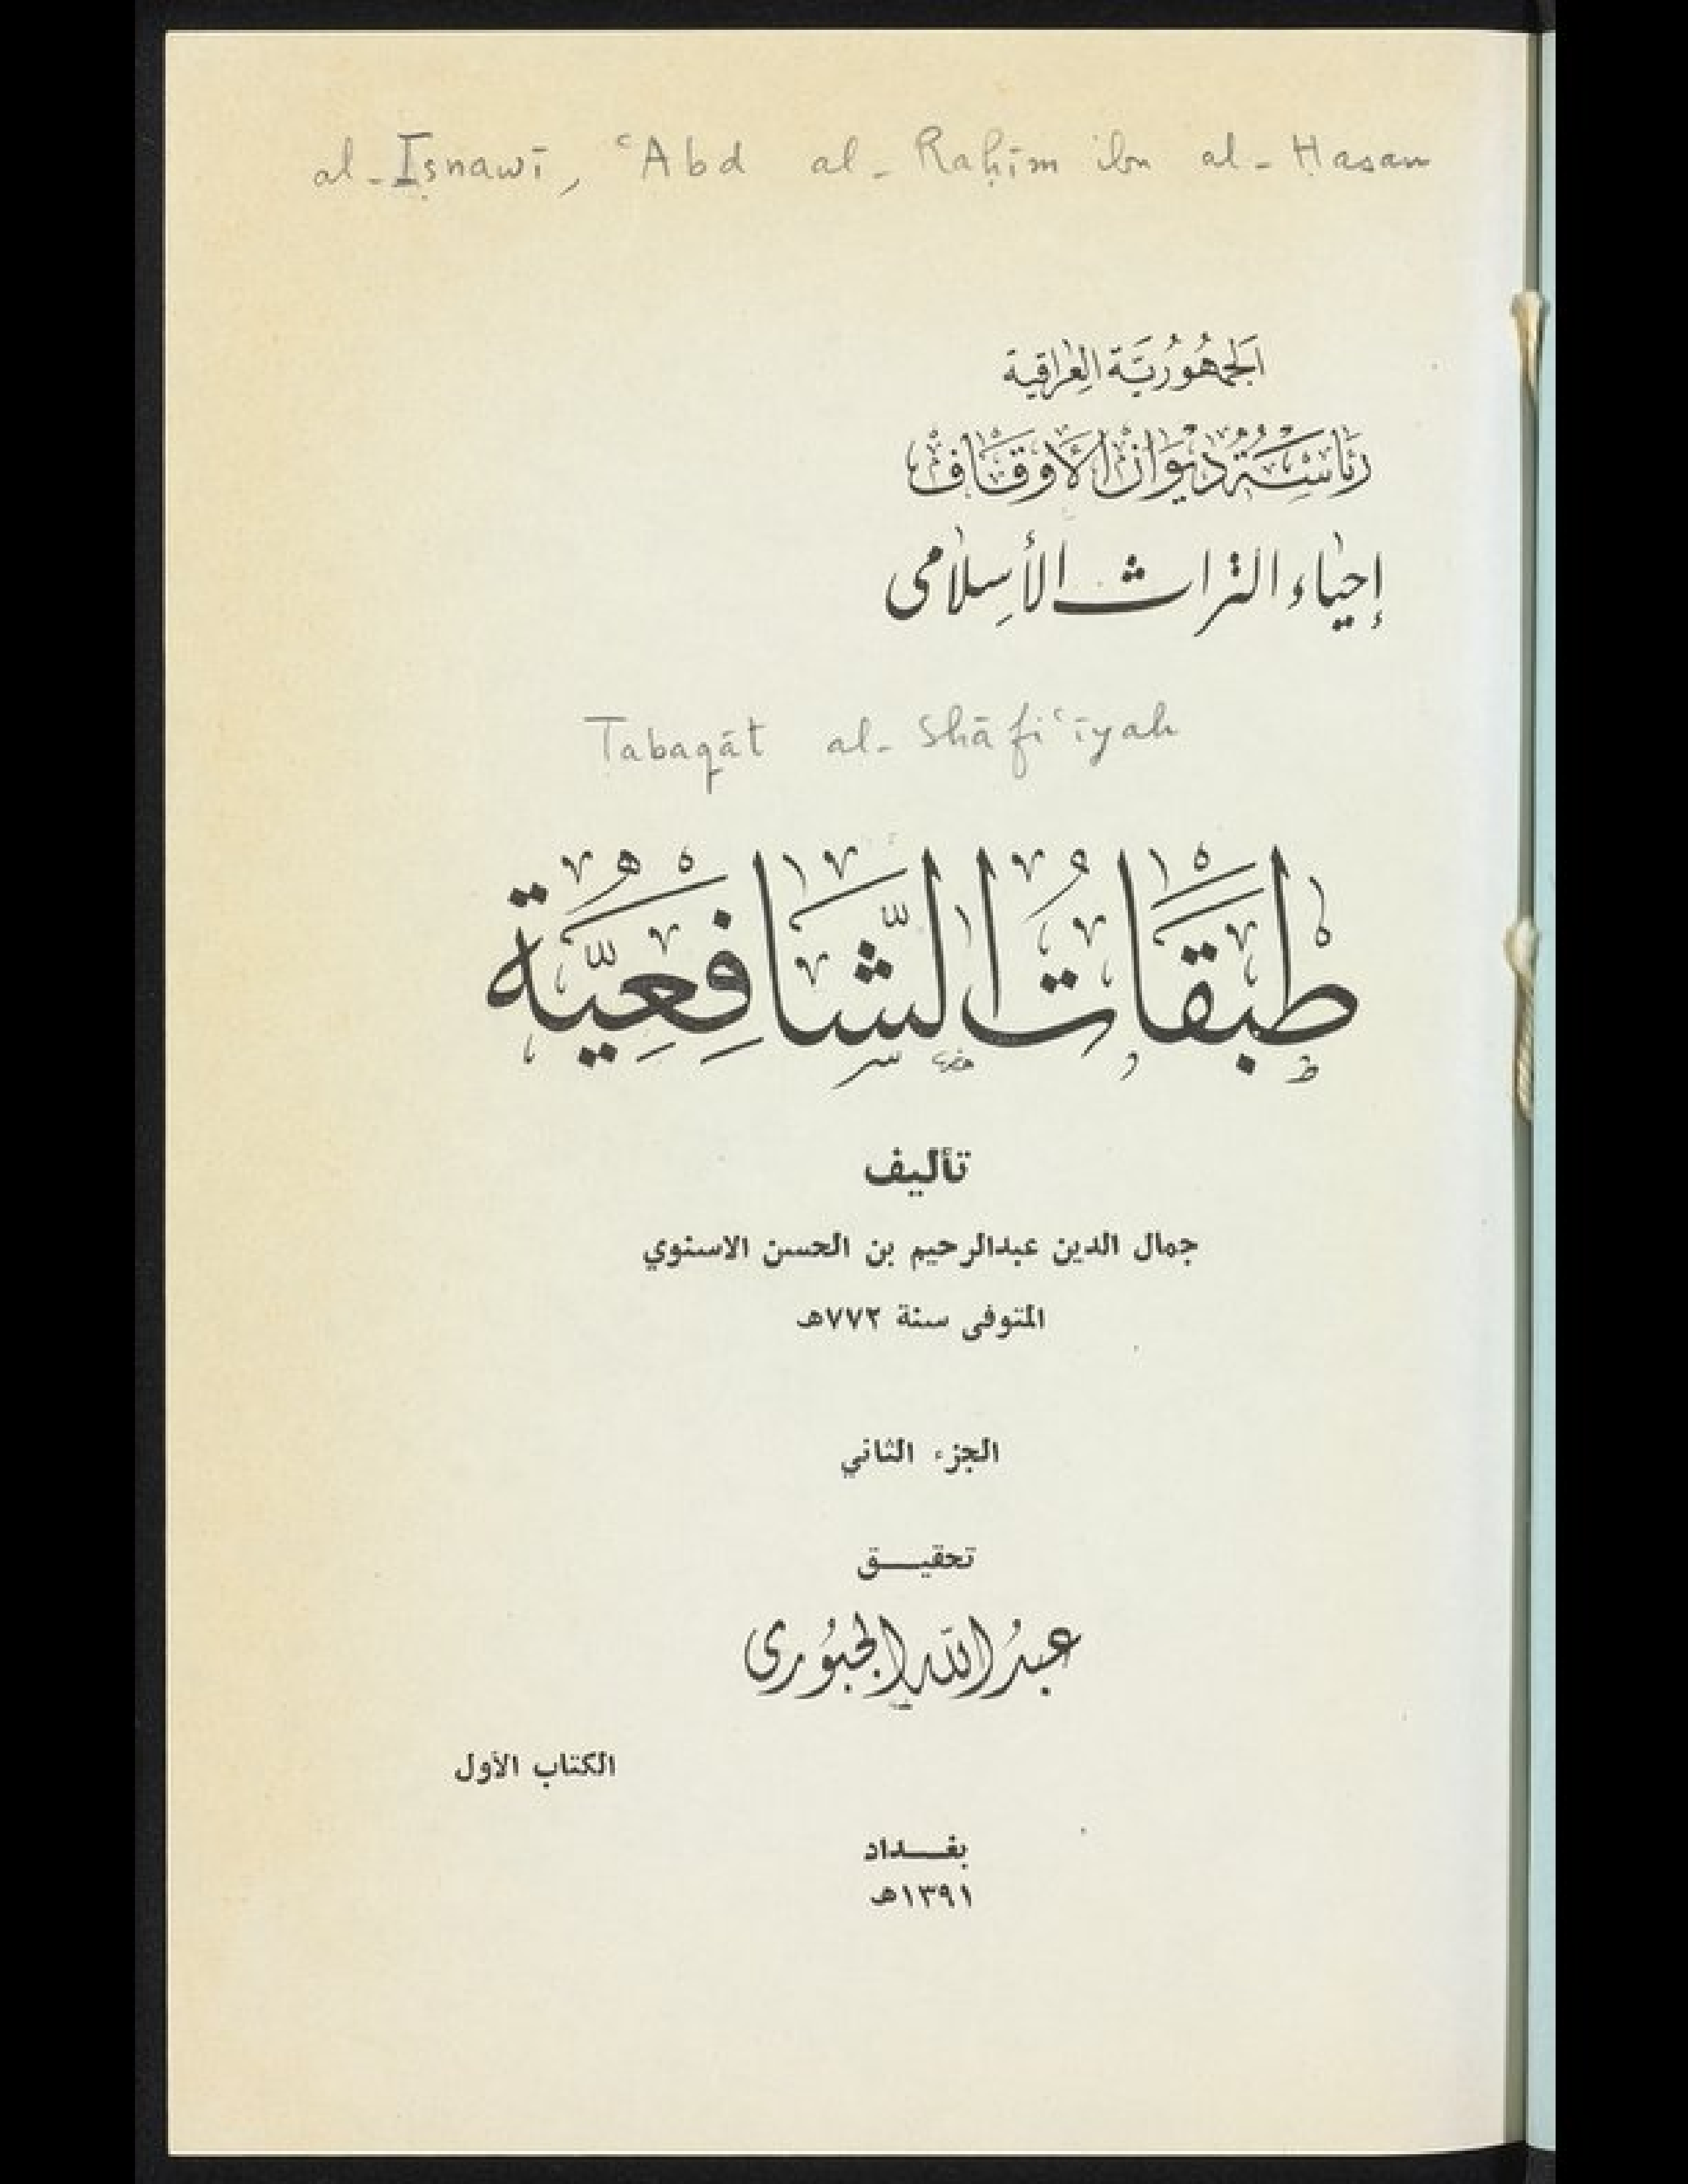 al-Iṣnawī, ʿAbd al-Raḥīm ibn al-Ḥasan
الجمهورية العراقية
رئاسة ديوان الأوقاف
إحياء التراث الأسلامى
Ṭabaqāt al-Shāfiʿīyah
طبقات الشافعية
تأليف
جمال الدين عبدالرحيم بن الحسن الاسنوي
المتوفى سنة ٧٧٢هـ
الجزء الثاني
تحقيـــق
عبد الله الجبورى
الكتاب الأول
بغـــداد
١٣٩١هـ